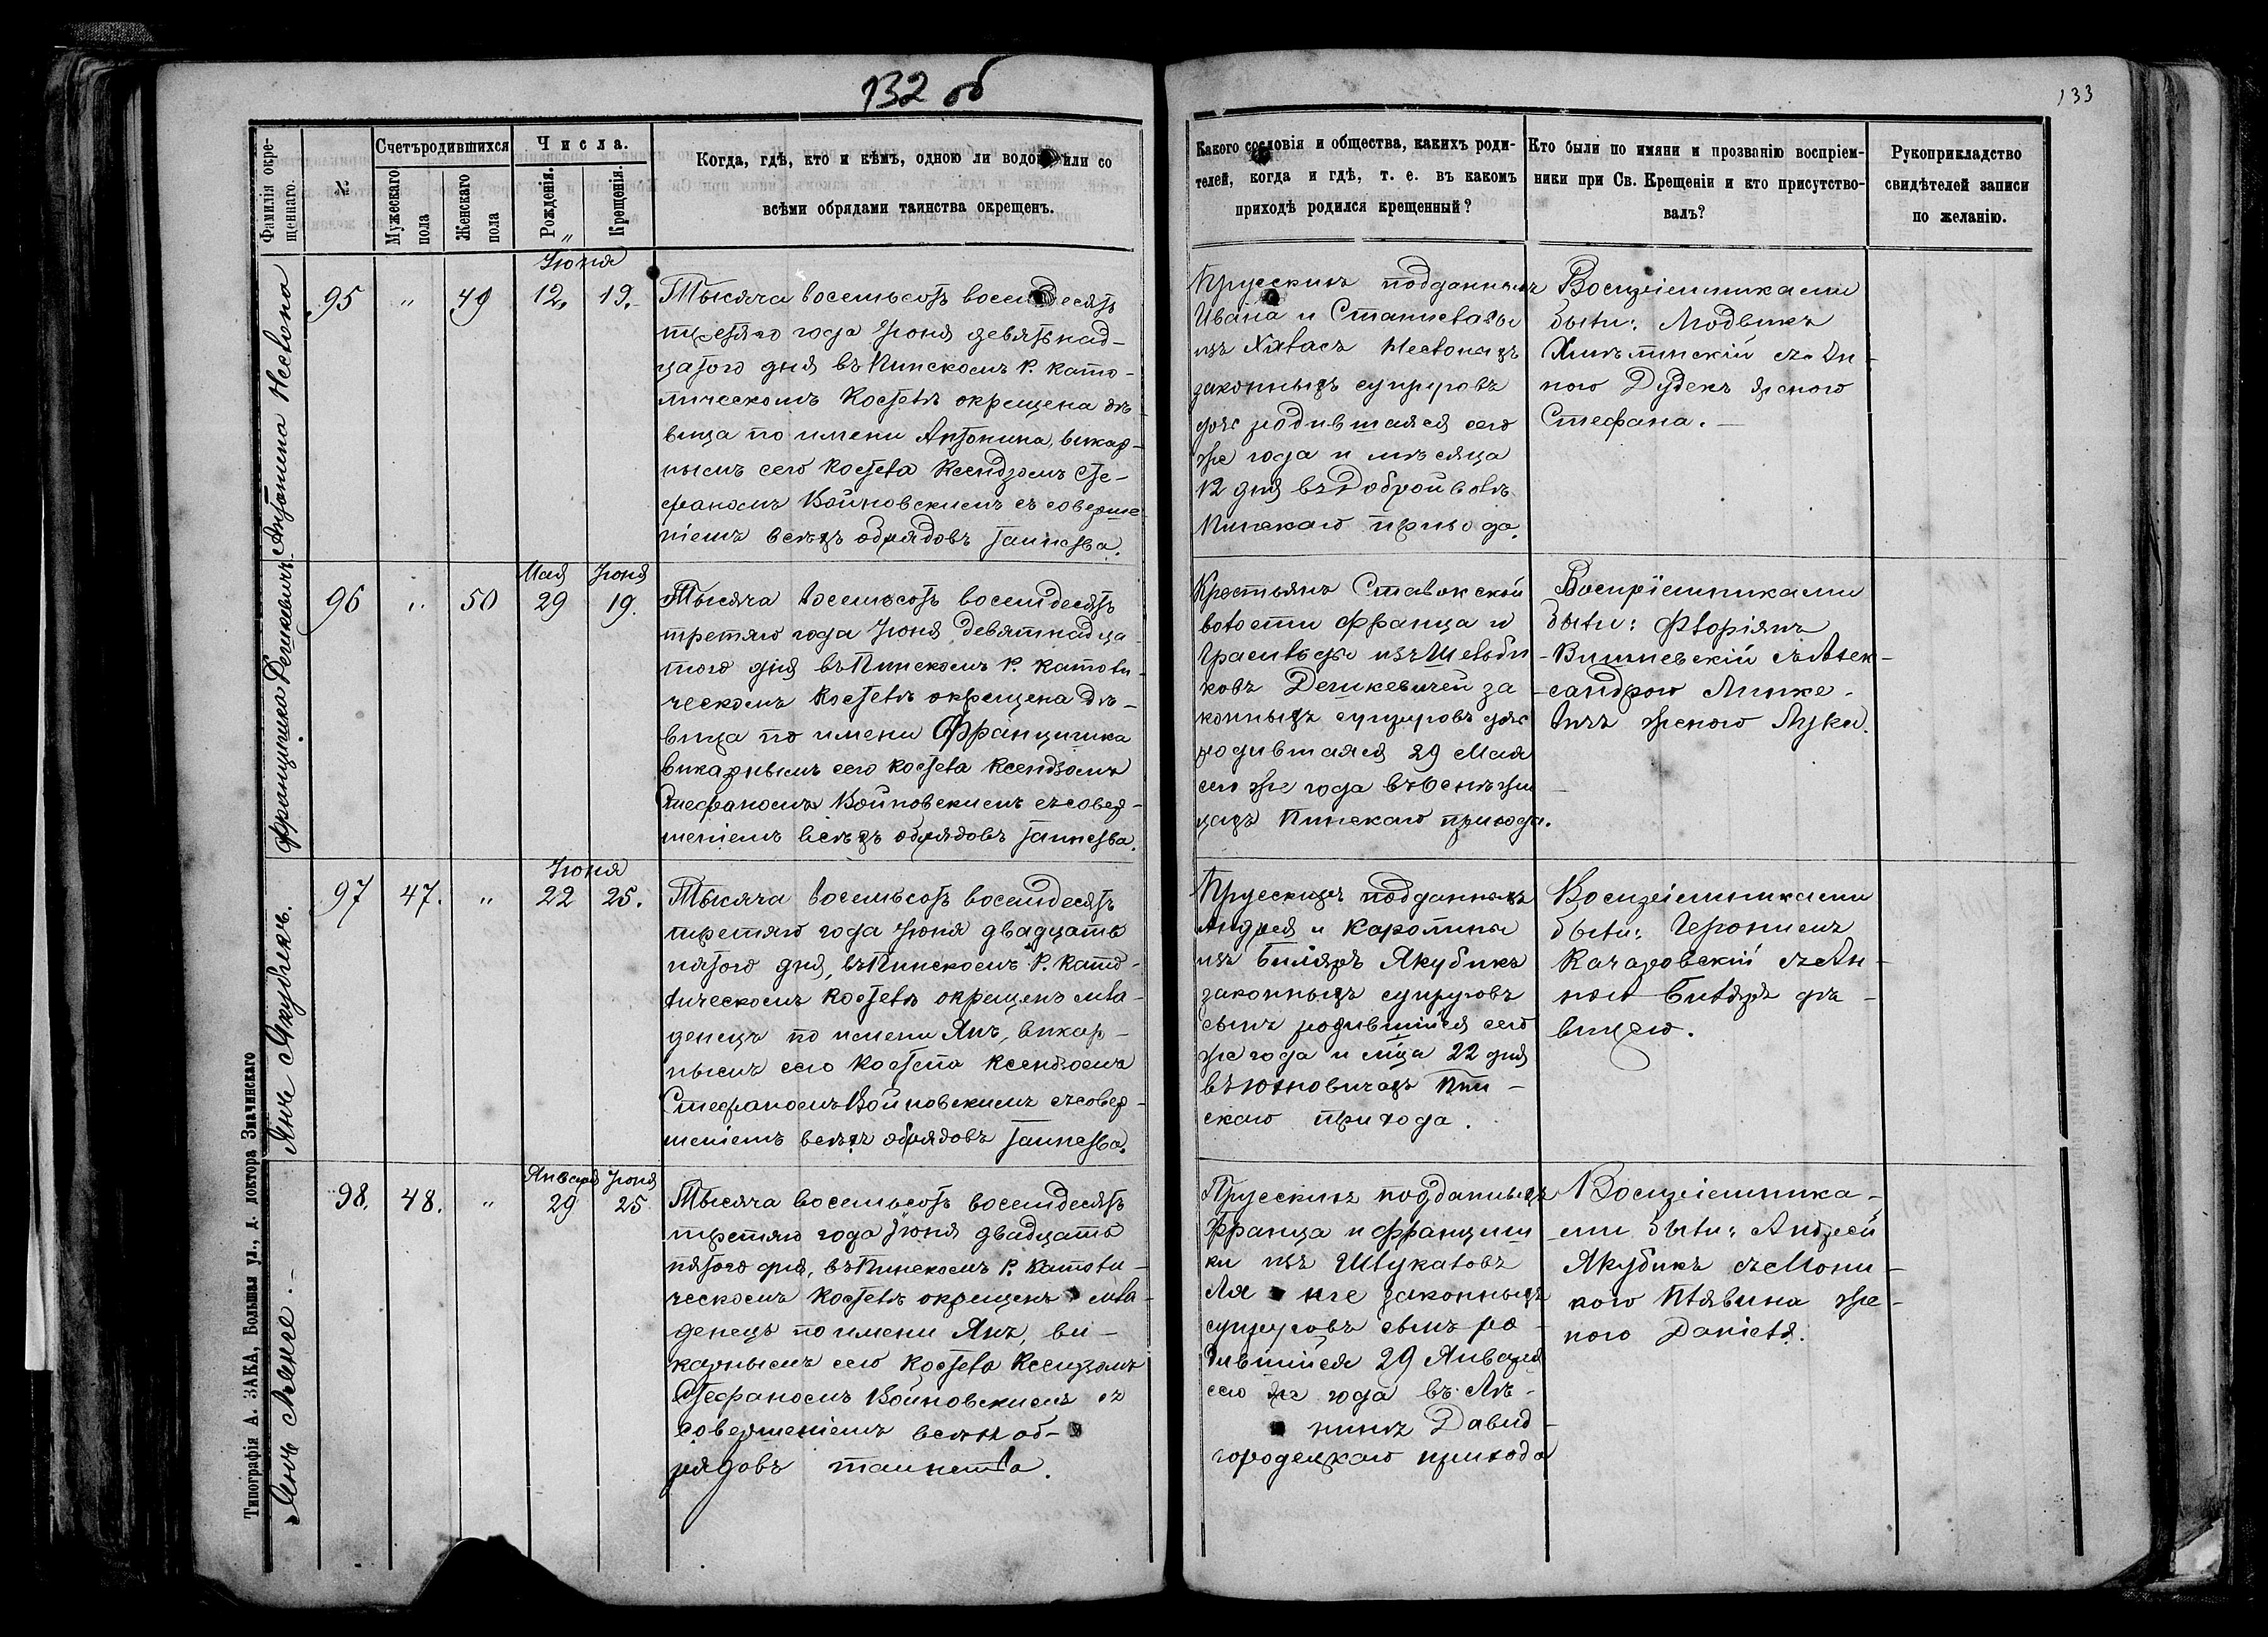 132 об
133
Фамилія окре-
щеннаго.
№
Счетъ родившихся
Мужескаго
пола
Женскаго
пола
Числа.
Рожденія.
Крещенія.
Когда, гдѣ, кто и кѣмъ, одною ли водою или со
всѣми обрядами таинства окрещенъ.
Какого сословія и общества, какихъ роди-
телей, когда и гдѣ, т. е. въ какомъ
приходѣ родился крещенный?
Кто были по имяни и прозванію воспріем-
ники при Св. Крещеніи и кто присутство-
валъ?
Рукоприкладство
свидѣтелей записи
по желанію.
Антонина
95 " 49
Іюня
12. 19.
Тысяча восемьсотъ восемдесятъ
третяго года Іюня девятьнад-
цатого дня въ Пинскомъ Р. Като-
лическомъ Костелѣ окрещена дѣ-
вица по имени Антонина, викар-
нымъ сего Костела Ксендзомъ Сте-
фаномъ Войновскимъ съ соверше-
ніемъ всѣхъ обрядовъ таинства.
Прусскихъ подданныхъ
Ивана и Станиславы
изъ
законныхъ супруговъ
дочь родившаяся сего
же года и мѣсяца
12 дня въ Доброй волѣ
Пинскаго прихода.
Воспріемниками
были: Людвикъ
съ Ан-
ною Дудекъ женою
Стефана.
Францишка Дешкевичъ
96 " 50
Мая Іюня
29 19.
Тысяча восемьсотъ восемдесятъ
третяго года Іюня девятнадца-
того дня въ Пинскомъ Р. Католи-
ческомъ Костелѣ окрещена дѣ-
вица по имени Францишка
викарнымъ сего костела Ксендзомъ
Стефаномъ Войновскимъ съ совер-
шеніемъ всѣхъ обрядовъ таинства.
Крестьянъ Ставокской
волости Франца и
изъ
Дешкевичей за-
конныхъ супруговъ дочь
родившаяся 29 Мая
сего же года въ Оснѣжи-
цахъ Пинскаго прихода.
Воспріемниками
были: Флоріянъ
Вишневскій съ Алек-
сандрою
женою Луки.
Янъ Якубикъ.
97 47. "
Іюня
22 25.
Тысяча восемьсотъ восемдесятъ
третяго года Іюня двадцать
пятого дня, въ Пинскомъ Р. Като-
лическомъ Костелѣ окрещенъ мла-
денецъ по имени Янъ, викар-
нымъ сего Костела Ксендзомъ
Стефаномъ Войновскимъ съ совер-
шеніемъ всѣхъ обрядовъ таинства.
Прусскихъ подданныхъ
Андрея и Каролины
изъ Биляръ Якубикъ
законныхъ супруговъ
сынъ родившійся сего
же года и мѣца 22 дня
въ Юхновичахъ Пин-
скаго прихода.
Воспріемниками
были: Іеронимъ
Качаровскій съ Ан-
ною Биляръ дѣ-
вицею.
Янъ
98. 48. "
Января Іюня
29 25
Тысяча восемьсотъ восемдесятъ
третяго года Іюня двадцать
пятого дня, въ Пинскомъ Р. Католи-
ческомъ Костелѣ окрещенъ мла-
денецъ по имени Янъ, ви-
карнымъ сего Костела Ксендзомъ
Стефаномъ Войновскимъ съ
совершеніемъ всѣхъ об-
рядовъ таинства.
Прусскихъ подданныхъ
Франца и Францишки
изъ
законныхъ
супруговъ сынъ ро-
дившійся 29 Января
сего же года въ
Давид-
городецкаго прихода
Воспріемника-
ми были: Андрей
Якубикъ съ Мони-
кою же-
ною Даніеля.
Типографія А. ЗАКА, Большая ул., д. доктора Значинскаго